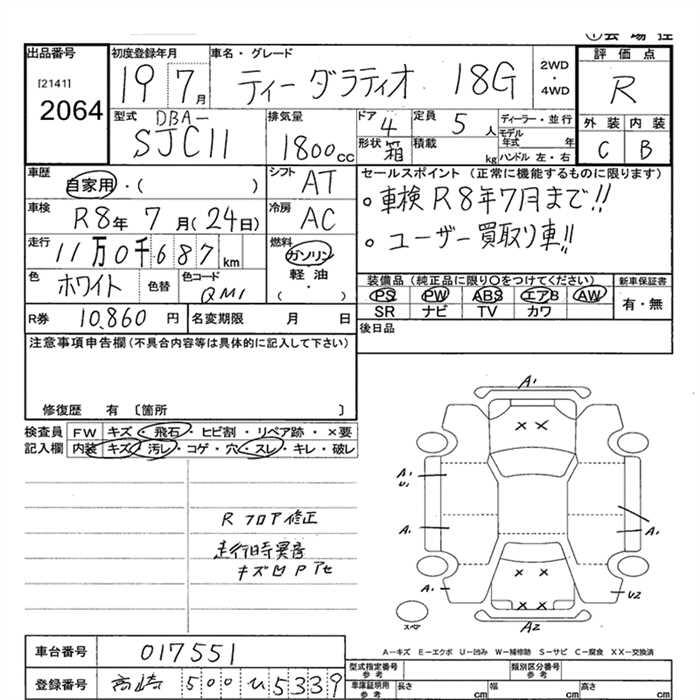 出品番号
[2141]
2064
初度登録年月
19 7月
車名・グレード
ティーダラティオ 18G
2WD
・
4WD
評価点
R
型式
DBA-
SJC11
排気量
1800cc
ドア
4
形状
箱
定員
5人
積載
kg
ディーラー・並行
モデル年式 年
ハンドル 左・右
外装 内装
C B
車歴
自家用・( )
シフト
AT
車検
R8年 7月(24日)
冷房
AC
走行
11万0千687km
燃料
ガソリン
軽油
( ・ )
色
ホワイト
色替
色コード
QM1
R券 10,860円
名変期限 月 日
セールスポイント (正常に機能するものに限ります)
・車検R8年7月まで!!
・ユーザー買取り車!!
装備品(純正品に限り○をつけてください)
PS PW ABS エアB AW
SR ナビ TV カワ
新車保証書
有・無
後日品
注意事項申告欄(不具合内容等は具体的に記入して下さい)
修復歴 有 〔箇所 〕
検査員
記入欄
FW キズ・飛石・ヒビ割・リペア跡・×要
内装 キズ・汚レ・コゲ・穴・スレ・キレ・破レ
Rフロア修正
走行時異音
キズ凹Pアセ
A1
××
A1
U1
A1
A1
××
A1
U2
××
A2
スペア
A-キズ E-エクボ U-凹み W-補修跡 S-サビ C-腐食 XX-交換済
車台番号 017551
登録番号 高崎 500 ひ 5339
型式指定番号
参考
類別区分番号
参考
車庫証明用
参考
長さ cm 幅 cm 高さ cm